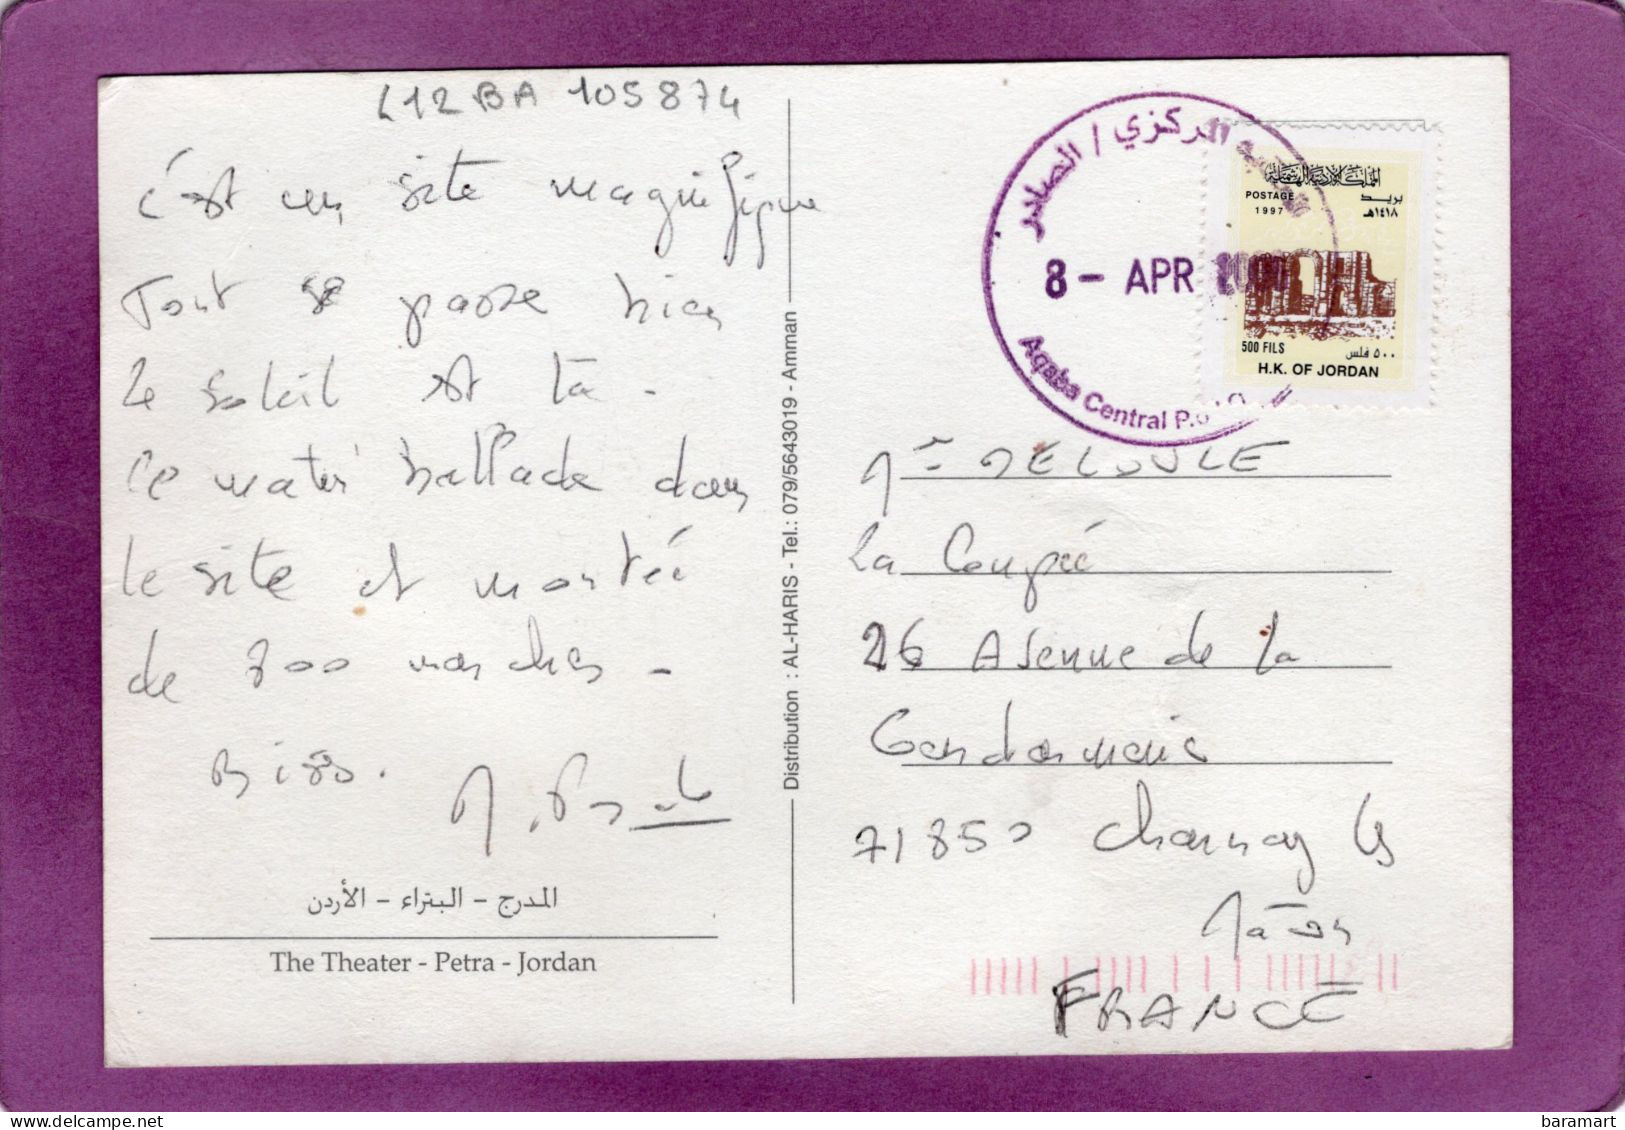 L12BA 105874
c'est un site magnifique
Tout se passe bien
Le soleil est là -
ce matin ballade dans
le site et montée
de 800 marches -
Bises.
المدرج - البتراء - الأردن
The Theater - Petra - Jordan
Distribution : AL-HARIS - Tel.: 079/5643019 - Amman
المركزي / الصادر
8 - APR
Aqaba Central P.
المملكة الأردنية الهاشمية
POSTAGE
1997
بريد
١٤١٨هـ
500 FILS
٥٠٠ فلس
H.K. OF JORDAN
La Coupée
26 Avenue de la
Gendarmerie
71850 Charnay les
Mâcon
FRANCE
baramart